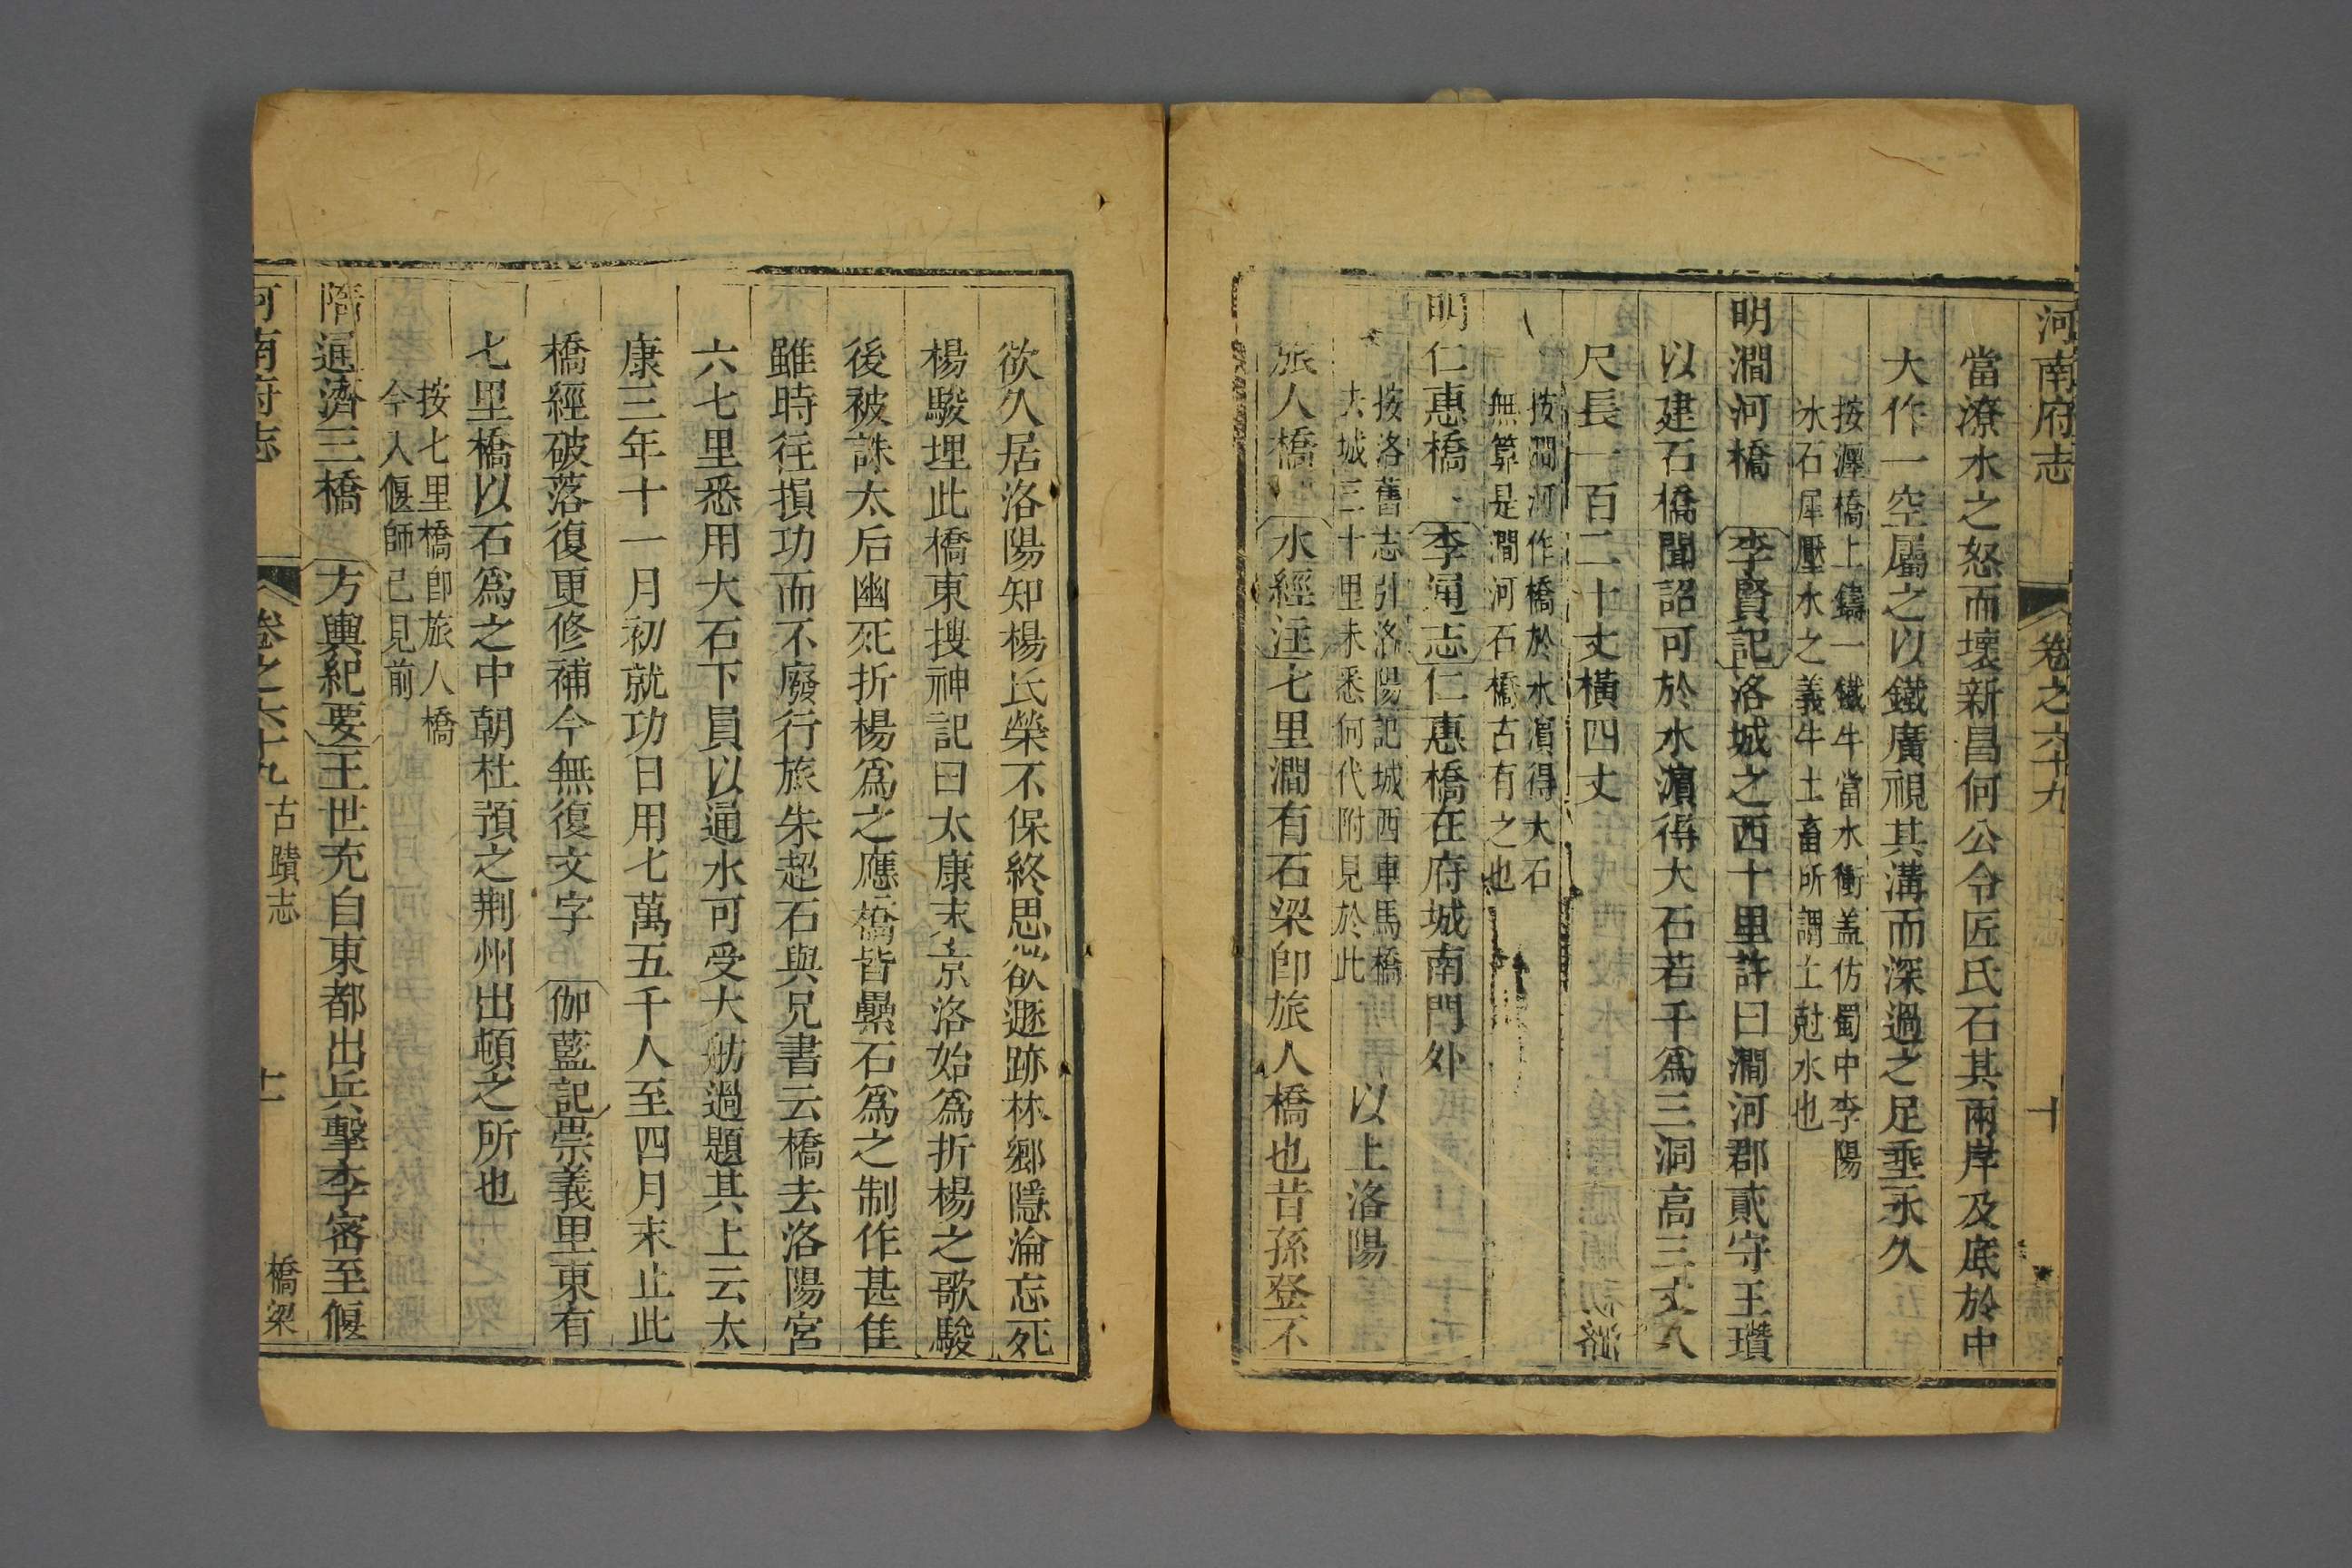 河南府志 卷之六十九 十
當潦水之怒而壞新昌何公令匠氏石其兩岸及底於中
大作一空屬之以鐵廣視其溝而深過之足垂永久
按瀍橋上鑄一鐵牛當水衝蓋仿蜀中李陽
冰石犀壓水之義牛土畜所謂土尅水也
明澗河橋 李賢記洛城之西十里許曰澗河郡貳守王瓚
以建石橋聞詔可於水濵得大石若干爲三洞高三丈八
尺長一百二十丈橫四丈
按澗河作橋於水濵得大石
無筭是澗河石橋古有之也
明仁惠橋 李通志仁惠橋在府城南門外
按洛舊志引洛陽記城西車馬橋
去城三十里未悉何代附見於此
以上洛陽
旅人橋 水經注七里澗有石梁卽旅人橋也昔孫登不
欲久居洛陽知楊氏榮不保終思欲遯跡林鄉隱淪忘死
楊駿埋此橋東搜神記曰太康末京洛始爲折楊之歌駿
後被誅太后幽死折楊爲之應橋皆纍石爲之制作甚佳
雖時往損功而不廢行旅朱超石與兄書云橋去洛陽宮
六七里悉用大石下員以通水可受大舫過題其上云太
康三年十一月初就功日用七萬五千人至四月末止此
橋經破落復更修補今無復文字 伽藍記崇義里東有
七里橋以石爲之中朝杜預之荆州出頓之所也
按七里橋卽旅人橋
今入偃師已見前
隋通濟三橋 方輿紀要王世充自東都出兵擊李密至偃
河南府志 卷之六十九 古蹟志 十一 橋梁